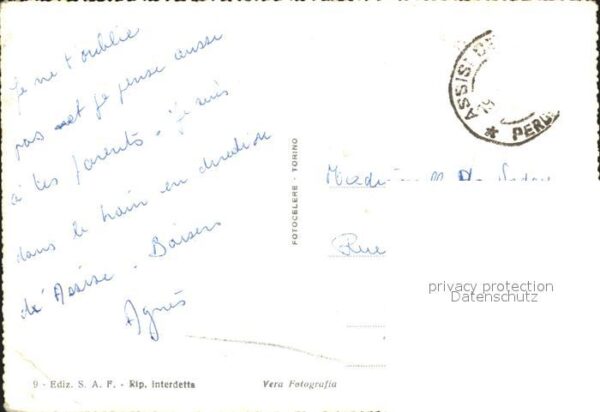 Je ne t'oublie
pas et je pense aussi
à tes parents. Je suis
dans le train en direction
de Assise. Baisers
Agnès
9 - Ediz. S. A. F. - Rip. interdetta
Vera Fotografia
FOTOCELERE - TORINO
ASSISI
* PERU
Rue
privacy protection
Datenschutz